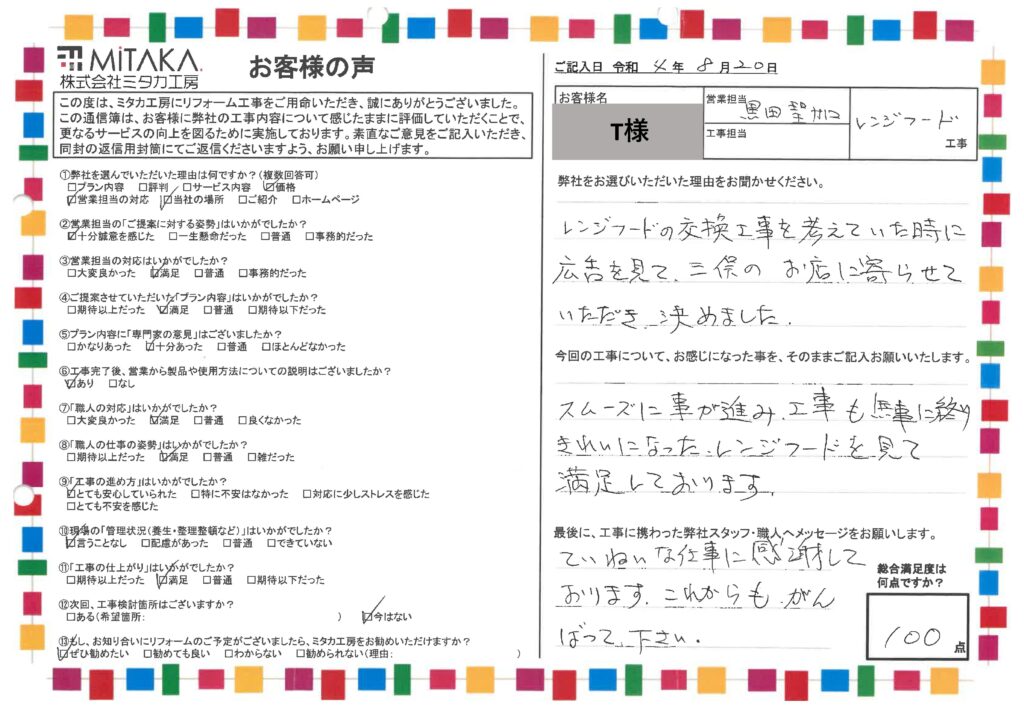 MiTAKA.
株式会社ミタカ工房
お客様の声
この度は、ミタカ工房にリフォーム工事をご用命いただき、誠にありがとうございました。
この通信簿は、お客様に弊社の工事内容について感じたままに評価していただくことで、
更なるサービスの向上を図るために実施しております。素直なご意見をご記入いただき、
同封の返信用封筒にてご返信くださいますよう、お願い申し上げます。
①弊社を選んでいただいた理由は何ですか?(複数回答可)
□プラン内容 □評判 □サービス内容 ☑価格
☑営業担当の対応 ☑当社の場所 □ご紹介 □ホームページ
②営業担当の「ご提案に対する姿勢」はいかがでしたか?
☑十分誠意を感じた □一生懸命だった □普通 □事務的だった
③営業担当の対応はいかがでしたか?
□大変良かった ☑満足 □普通 □事務的だった
④ご提案させていただいた「プラン内容」はいかがでしたか?
□期待以上だった ☑満足 □普通 □期待以下だった
⑤プラン内容に「専門家の意見」はございましたか?
□かなりあった ☑十分あった □普通 □ほとんどなかった
⑥工事完了後、営業から製品や使用方法についての説明はございましたか?
☑あり □なし
⑦「職人の対応」はいかがでしたか?
□大変良かった ☑満足 □普通 □良くなかった
⑧「職人の仕事の姿勢」はいかがでしたか?
□期待以上だった ☑満足 □普通 □雑だった
⑨「工事の進め方」はいかがでしたか?
☑とても安心していられた □特に不安はなかった □対応に少しストレスを感じた
□とても不安を感じた
⑩現場の「管理状況(養生・整理整頓など)」はいかがでしたか?
☑言うことなし □配慮があった □普通 □できていない
⑪「工事の仕上がり」はいかがでしたか?
□期待以上だった ☑満足 □普通 □期待以下だった
⑫次回、工事検討箇所はございますか?
□ある(希望箇所: ) ☑今はない
⑬もし、お知り合いにリフォームのご予定がございましたら、ミタカ工房をお勧めいただけますか?
☑ぜひ勧めたい □勧めても良い □わからない □勧められない(理由: )
ご記入日 令和 4年 8月20日
お客様名
T様
営業担当
黒田
工事担当
レンジフード
工事
弊社をお選びいただいた理由をお聞かせください。
レンジフードの交換工事を考えていた時に
広告を見て、三保の お店に寄らせて
いただき 決めました.
今回の工事について、お感じになった事を、そのままご記入お願いいたします。
スムーズに 事が進み、工事も 無事に終り
きれいになった、レンジフードを見て
満足しております。
最後に、工事に携わった弊社スタッフ・職人へメッセージをお願いします。
ていねいな仕事に感謝して
おります。これからも がん
ばって 下さい.
総合満足度は
何点ですか?
100 点